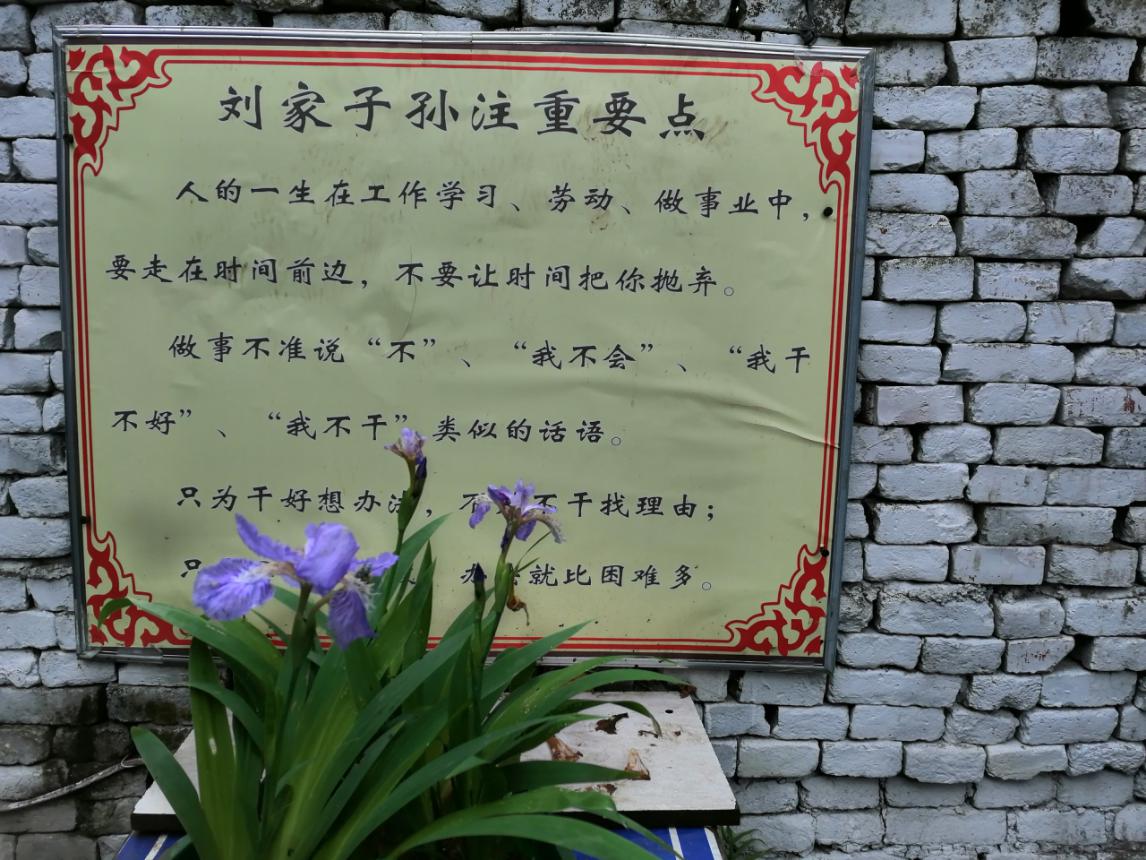 刘家子孙注重要点
人的一生在工作学习、劳动、做事业中，
要走在时间前边，不要让时间把你抛弃。
做事不准说“不”、“我不会”、“我干
不好”、“我不干”类似的话语。
只为干好想办法，不 不干找理由；
只 办 就比困难多。